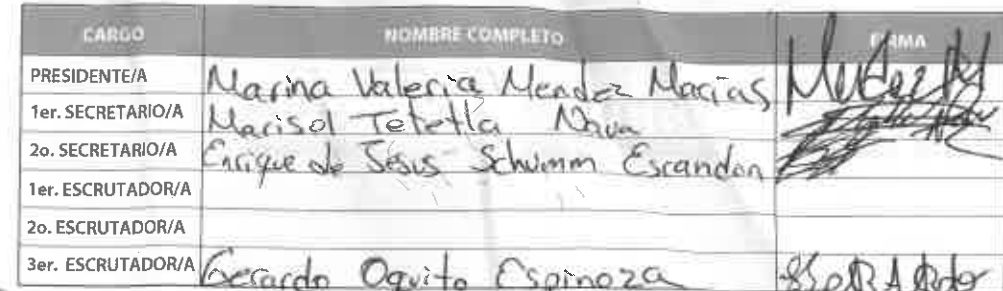 CARGO NOMBRE COMPLETO FIRMA
PRESIDENTE/A Marina Valeria Mendez Macías
1er. SECRETARIO/A Marisol Tetetla Nava
2o. SECRETARIO/A Enrique de Jesús Schumm Escandon
1er. ESCRUTADOR/A
2o. ESCRUTADOR/A
3er. ESCRUTADOR/A Gerardo Oquito Espinoza